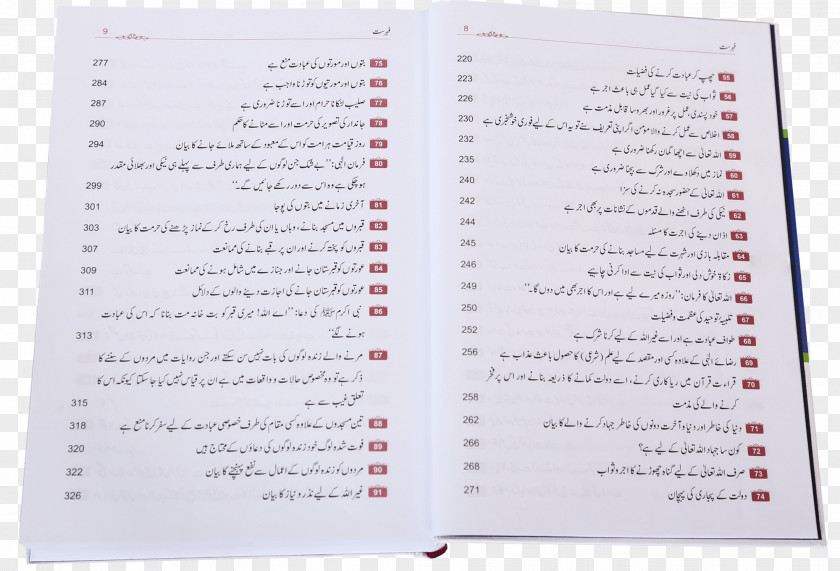 8 فہرست
55 چھپ کر عبادت کرنے کی فضیلت 220
56 ثواب کی نیت سے کیا گیا عمل ہی باعث اجر ہے 223
57 خود پسندی، عمل پر غرور اور بھروسا قابل مذمت ہے 226
58 اخلاص سے عمل کرنے والا مومن اگر اپنی تعریف سنے تو یہ اس کے لیے فوری خوشخبری ہے 230
59 اللہ تعالیٰ سے اچھا گمان رکھنا ضروری ہے 232
60 نماز میں دکھلاوے اور شرک سے بچنا ضروری ہے 235
61 اللہ تعالیٰ کے حضور سجدہ نہ کرنے کی سزا 240
62 نیکی کی طرف اٹھنے والے قدموں کے نشانات پر بھی اجر ہے 242
63 اذان دینے کی اجرت کا مسئلہ 244
64 مقابلہ بازی اور شہرت کے لیے مساجد بنانے کی حرمت کا بیان 245
65 زکاۃ خوش دلی اور ثواب کی نیت سے ادا کرنی چاہیے 246
66 اللہ تعالیٰ کا فرمان: ’’روزہ میرے لیے ہے اور اس کا اجر بھی میں دوں گا۔‘‘ 249
67 تلبیۂ توحید کی عظمت و فضیلت 250
68 طواف عبادت ہے اور اسے غیر اللہ کے لیے کرنا شرک ہے 252
69 رضائے الٰہی کے علاوہ کسی اور مقصد کے لیے علم (شرعی) کا حصول باعث عذاب ہے 256
70 قراءت قرآن میں ریاکاری کرنے، اسے دولت کمانے کا ذریعہ بنانے اور اس پر فخر
کرنے والے کی مذمت 258
71 دنیا کی خاطر اور دنیا و آخرت دونوں کی خاطر جہاد کرنے والے کا بیان 262
72 کون سا جہاد اللہ تعالیٰ کے لیے ہے؟ 266
73 صرف اللہ تعالیٰ کے لیے گناہ چھوڑنے کا اجر و ثواب 268
74 دولت کے پجاری کی پہچان 271
9 فہرست
75 بتوں اور مورتوں کی عبادت منع ہے 277
76 بتوں اور مورتیوں کو توڑنا واجب ہے 284
77 صلیب لٹکانا حرام اور اسے توڑنا ضروری ہے 287
78 جاندار کی تصویر کی حرمت اور اسے مٹانے کا حکم 290
79 روز قیامت ہر امت کو اس کے معبود کے ساتھ ملائے جانے کا بیان 294
80 فرمان الٰہی: ’’بے شک جن لوگوں کے لیے ہماری طرف سے پہلے ہی نیکی اور بھلائی مقدر
ہو چکی ہے وہ اس سے دور رکھے جائیں گے۔‘‘ 299
81 آخری زمانے میں بتوں کی پوجا 301
82 قبروں میں مسجد بنانے، وہاں یا ان کی طرف رخ کر کے نماز پڑھنے کی حرمت کا بیان 303
83 قبروں کو پختہ کرنے اور ان پر قبے بنانے کی ممانعت 307
84 عورتوں کو قبرستان جانے اور جنازے میں شامل ہونے کی ممانعت 309
85 عورتوں کو قبرستان جانے کی اجازت دینے والوں کے دلائل 311
86 نبی اکرم ﷺ کی دعا: ’’اے اللہ! میری قبر کو بت خانہ مت بنانا کہ اس کی عبادت
ہونے لگے‘‘ 313
87 مرنے والے زندہ لوگوں کی بات نہیں سن سکتے اور جن روایات میں مردوں کے سننے کا
ذکر ہے تو وہ مخصوص حالات و واقعات میں ہے ان پر قیاس نہیں کیا جا سکتا کیونکہ اس کا
تعلق غیب سے ہے 315
88 تین مسجدوں کے علاوہ کسی مقام کی طرف خصوصی عبادت کے لیے سفر کرنا منع ہے 318
89 فوت شدہ لوگ خود زندہ لوگوں کی دعاؤں کے محتاج ہیں 320
90 مردوں کو زندہ لوگوں کے اعمال سے نفع پہنچنے کا بیان 322
91 غیر اللہ کے لیے نذر و نیاز کا بیان 326